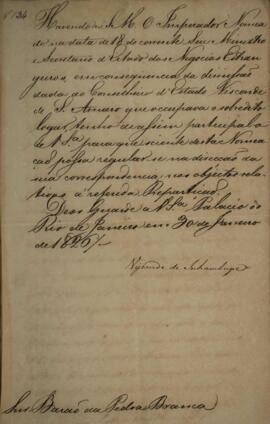 Havendo S. M. O Imperador Nomea
do na data de 18 do corrente Seu Ministro
e Secretario d'Estado dos Negocios Estran
geiros, em consequencia da demissão
dada ao Conselheiro d'Estado Visconde
de S. Amaro que occupava o sobredito
logar, tenho de assim participal-o
a V. Sa. para que sciente desta Nomea
ção possa regular-se na direcção da
sua correspondencia, nos objectos rela
tivos á referida Repartição.
Deos Guarde a V. Sa. Palacio do
Rio de Janeiro em 30 de Janeiro
de 1826
Visconde de Inhambupe
Snr. Barão da Pedra Branca